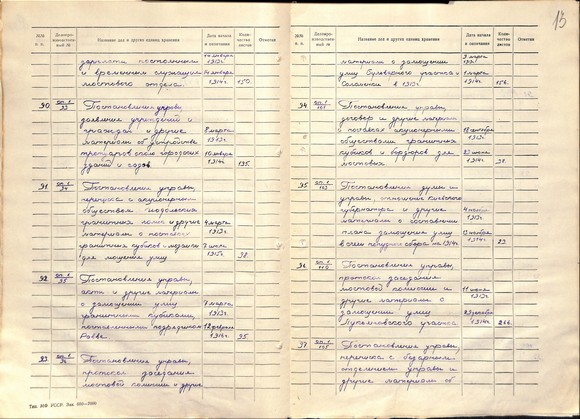 №№ п. п.
Делопро-
изводствен-
ный №
Название дел и других единиц хранения
Дата начала
и окончания
Коли-
чество
листов
Отметки
зарплата постоянным
и временным служащим
мостового отдела.
1913г.
января
1914г.
150.
90. оп.1
93
Постановления управы,
заявления учреждений и
граждан и другие
материалы об устройстве
тротуаров около городских
зданий и садов.
8 марта
1913г.
10 января
1914г.
135.
91. оп.1
94
Постановления управы,
переписка с акционерным
обществом подольских
гранитных ломок и другие
материалы о поставках
гранитных кубиков и
для мощения улиц
4 марта
1913г.
7 июля
1915г.
38.
92 оп.1
95
Постановления управы,
акты и другие материалы
о замощении улиц
гранитными кубиками,
поставленными подрядчиком
7 марта
1913г.
12 февраля
1914г.
35.
93 оп.1
96
Постановления управы,
протокол заседания
мостовой комиссии и другие
Тип. ЮФ УССР. Зак.
13
№№ п. п.
Делопро-
изводствен-
ный №
Название дел и других единиц хранения
Дата начала
и окончания
Коли-
чество
листов
Отметки
материалы о замощении
улиц Бульварного участка и
Соломенки в 1913г.
9 марта
1 марта
1914г.
156.
94 оп.1
101
Постановления управы,
договор и другие материалы
о поставках акционерными
обществами гранитных
кубиков и бордюров для
мостовых.
18 сентября
1913г.
1914г.
38.
95 оп.1
103
Постановления думы и
управы, отношения Киевского
губернатора и другие
материалы о составлении
плана замощения улиц
в счет попудного сбора на 1914г.
4 ноября
1913г.
1914г.
23
96 оп.1
Постановления управы,
протокол заседания
мостовой комиссии и
другие материалы о
замощении улиц
Лукьяновского участка
11 июня
1913г.
23 декабря
1914г.
266.
97 оп.1
Постановления управы,
переписка с базарным
отделением управы и
другие материалы об